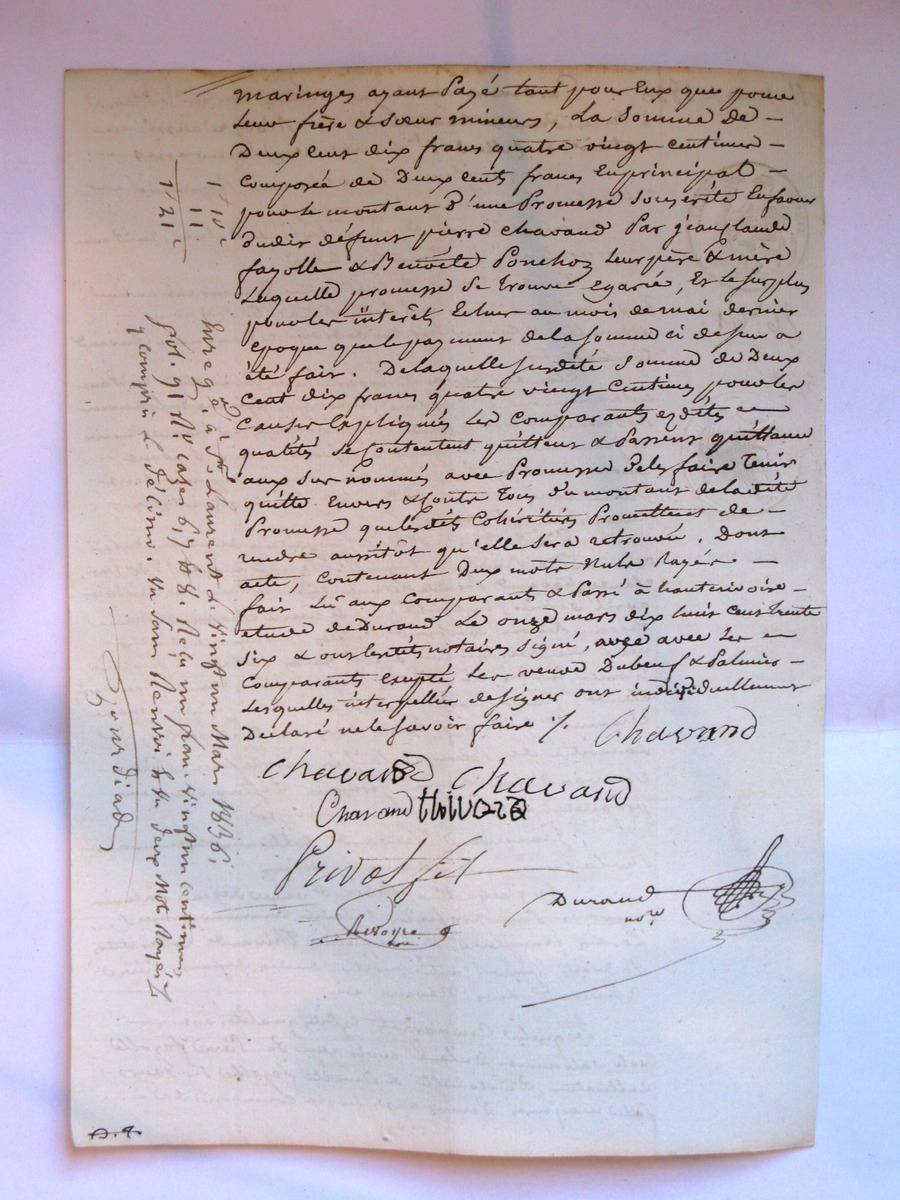 maringes ayant Payé tant pour Eux que pour
Leur frère & Sœur mineurs, La Somme de –
Deux Cent dix francs quatre vingt centimes –
Composée de Deux cents francs En principal –
pour le montant d'une Promesse Souscrite En faveur
dudit défunt pierre Chavand Par jean Claude
fayolle & Benoite Ponchoz Leur père & mère
Laquelle promesse Se trouve Egarée, Et le Surplus
pour les intérêts Echus au mois de mai dernier
époque que le payment de la somme ci dessus a
été fait. De laquelle Susdite Somme de Deux
Cent dix francs quatre vingt Centimes pour les
Causes Expliquées Les Comparants esdites –
qualités Se Contentent quittent & Passent quittance
aux Sus nommés avec Promesse de les faire Tenir
quitte Envers & Contre Tous du montant de la dite
Promesse que lesdits Cohéritiers Promettent de –
rendre aussitôt qu'elle Sera retrouvée. Dont
acte, Contenant Deux mots Nuls Rayés –
fait Lu aux Comparants & Passé à hauterivoire –
étude de Durand Le onze mars dix huit Cent trente
Six & ont lesdits notaires Signé, avec les –
Comparants Excepté Les veuve Dubeuf & Palmier –
Lesquelles interpellées de signer ont individuellement
Déclaré ne le Savoir faire ./.
Chavand
Chavand Chavand
Chavand
Privat fils
Durand
not.re
1f 10c
11
1f 21c
Enreg.é à St Laurent le Vingt un Mars 1836,
fol. 91 R.o cases 6, 7 & 8. Reçu un franc vingt un centimes
y compris le décime. Un Sont Renvoi & deux Mots Rayés
Gourdiad